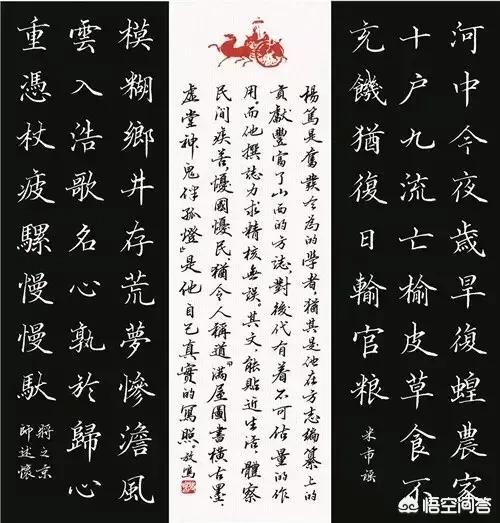 河中今夜歲旱復蝗農家
十户九流亡榆皮草食不
充饑猶復日輸官粮
米市謡
楊篤是奮發今為的學者猶其是他在方志編纂上的
貢獻豐富了山西的方誌，對後代有着不可估量的作
用，而他撰誌力求精核無誤，其文，能貼近生活，體察
民间疾苦，憂國憂民猶令人稱道"滿屋圖書橫古墨，
虚堂神鬼伴孤燈"是他自己真實的寫照。敬寫
模糊鄉井存荒夢慘澹風
雲入浩歌名心孰於歸心
重憑杖疲騾慢慢馱
將之京
師述懷
悟空问答